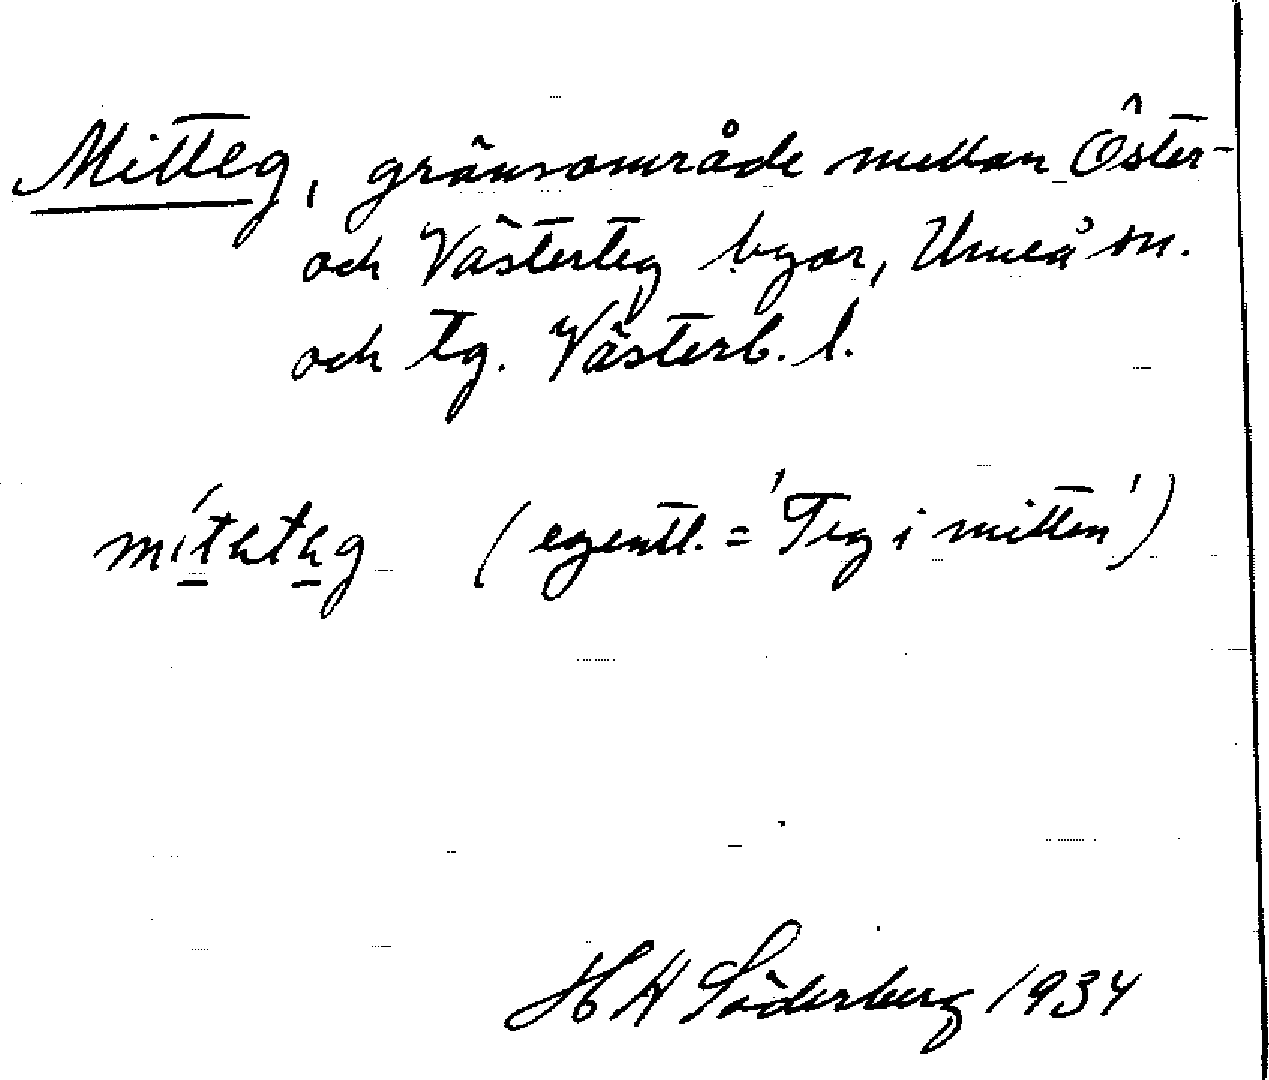 Mitteg, gränsområde mellan Öster-
och Västerteg byar, Umeå sn.
och tg. Västerb. l.
(egentl. = 'Teg i mitten')
H H Söderberg 1934